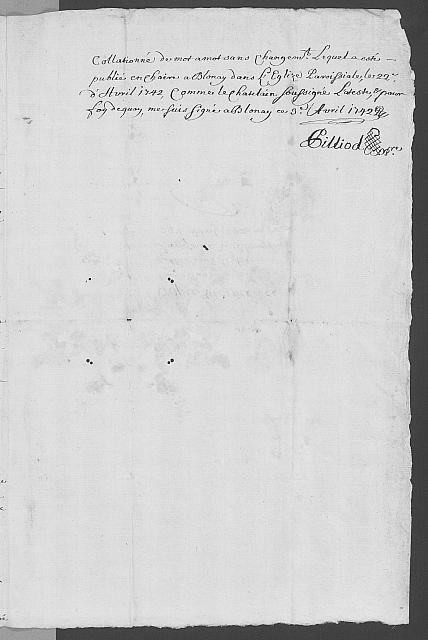 Collationné de mot a mot sans changemt. Lequel a esté
publié en chaire a Blonay dans l'Eglize Paroissiale, le 22e.
d'Avril 1742, Comme le chatelain soussigné L'ateste, & pour
foy de quoy, me suis signé a Blonay ce Avril 1742
Gilliod